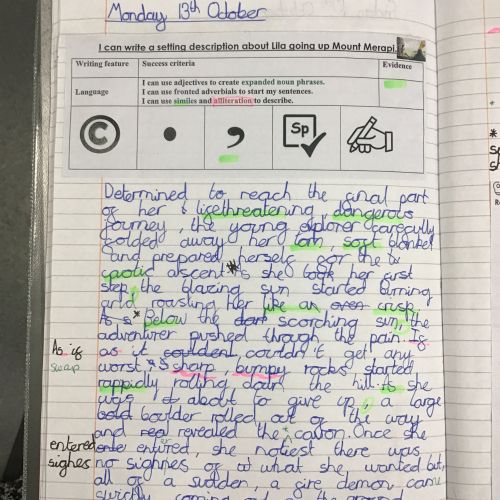 Monday 13th October
I can write a setting description about Lila going up Mount Merapi.
Writing feature Success criteria Evidence
Language
I can use adjectives to create expanded noun phrases.
I can use fronted adverbials to start my sentences.
I can use similes and alliteration to describe.
©
,
Sp
Determined to reach the final part
of her lifethreatening, dangerous
journey, the young explorer carefully
folded away her torn, soft blanket
and prepared herself for the
ascent. As she took her first
step, the blazing sun started burning
and roasting her like an oven crisp.
Below the scorching sun, the
adventurer pushed through the pain. Is
As if
as it couldent, couldn't get any
swap
worst, sharp, bumpy rocks started
rappidly rolling down the hill. As she
was about to give up, a large
bold boulder rolled out of the way
and revealed the Once she
entered
entered, she notiest there was
sighes
no sighnes of what she wanted but,
all of a sudden, a fire demon came
coming out of the